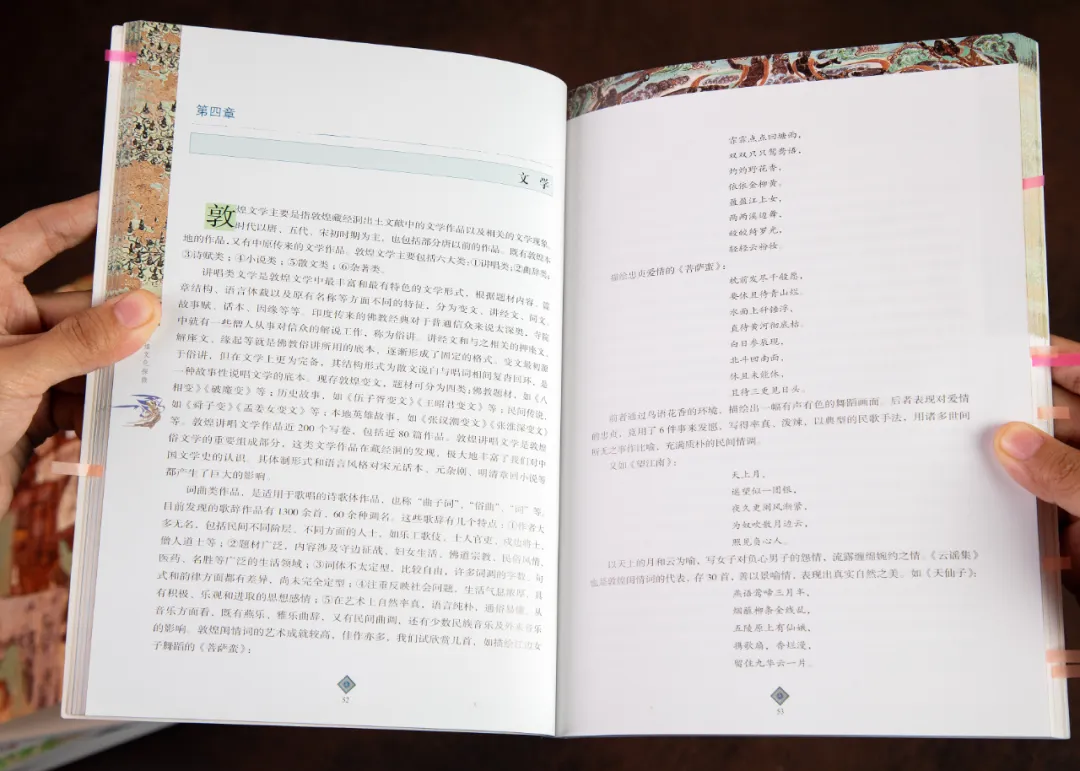 第四章
文 学
敦煌文学主要是指敦煌藏经洞出土文献中的文学作品以及相关的文学现象,
时代以唐、五代、宋初时期为主，也包括部分唐以前的作品。既有敦煌本
地的作品,又有中原传来的文学作品。敦煌文学主要包括六大类:①讲唱类;②曲辞类;
③诗赋类；④小说类；⑤散文类；⑥杂著类。
讲唱类文学是敦煌文学中最丰富和最有特色的文学形式，根据题材内容、篇
章结构、语言体裁以及原有名称等方面不同的特征，分为变文、讲经文、词文、
故事赋、话本、因缘等等。印度传来的佛教经典对于普通信众来说太深奥，寺院
中就有一些僧人从事对信众的解说工作，称为俗讲。讲经文和与之相关的押座文、
解座文、缘起等就是佛教俗讲所用的底本，逐渐形成了固定的格式。变文最初源
于俗讲，但在文学上更为完备，其结构形式为散文说白与唱词相间复沓回环，是
一种故事性说唱文学的底本。现存敦煌变文，题材可分为四类:佛教题材，如《八
相变》《破魔变》等；历史故事，如《伍子胥变文》《王昭君变文》等；民间传说,
如《舜子变》《孟姜女变文》等；本地英雄故事，如《张议潮变文》《张淮深变文》
等。敦煌讲唱文学作品近 200 个写卷，包括近 80 篇作品。敦煌讲唱文学是敦煌
俗文学的重要组成部分，这类文学作品在藏经洞的发现，极大地丰富了我们对中
国文学史的认识。其体制形式和语言风格对宋元话本、元杂剧、明清章回小说等
都产生了巨大的影响。
词曲类作品，是适用于歌唱的诗歌体作品，也称“曲子词”、“俗曲”、“词”等。
目前发现的歌辞作品有 1300 余首、60 余种调名。这些歌辞有几个特点：①作者大
多无名，包括民间不同阶层、不同方面的人士，如乐工歌伎、士人官吏、戍边将士、
僧人道士等；②题材广泛，内容涉及守边征战、妇女生活、佛道宗教、民俗风情、
医药、名胜等广泛的生活领域；③词体不太定型，比较自由，许多词调的字数、句
式和韵律方面都有差异，尚未完全定型；④注重反映社会问题，生活气息浓厚，具
有积极、乐观和进取的思想感情；⑤在艺术上自然率真，语言纯朴，通俗易懂。从
音乐方面看，既有燕乐、雅乐曲辞，又有民间曲调，还有少数民族音乐及外来音乐
的影响。敦煌闺情词的艺术成就较高，佳作亦多，我们试欣赏几首，如描绘江边女
子舞蹈的《菩萨蛮》：
52
霏霏点点回塘雨，
双双只只鸳鸯语，
灼灼野花香，
依依金柳黄。
盈盈江上女，
两两溪边舞，
皎皎绮罗光，
轻轻云粉妆。
描绘忠贞爱情的《菩萨蛮》：
枕前发尽千般愿，
要休且待青山烂。
水面上秤锤浮，
直待黄河彻底枯。
白日参辰现，
北斗回南面，
休且未能休，
且待三更见日头。
前者通过鸟语花香的环境，描绘出一幅有声有色的舞蹈画面。后者表现对爱情
的忠贞，竟用了 6 件事来发愿，写得率真、泼辣，以典型的民歌手法，用诸多世间
所无之事作比喻，充满质朴的民间情调。
又如《望江南》：
天上月，
遥望似一团银，
夜久更阑风渐紧，
为奴吹散月边云，
照见负心人。
以天上的月和云为喻，写女子对负心男子的怨情，流露缠绵婉约之情。《云谣集》
也是敦煌闺情词的代表，存 30 首，善以景喻情，表现出真实自然之美。如《天仙子》：
燕语莺啼三月半，
烟蘸柳条金线乱，
五陵原上有仙娥，
携歌扇，香烂漫，
留住九华云一片。
53